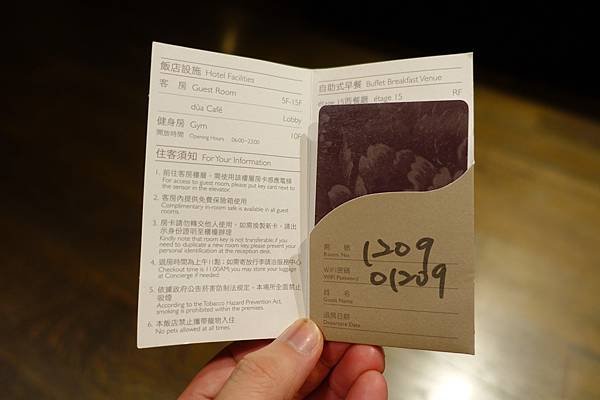 飯店設施 Hotel Facilities
客 房 Guest Room 5F-15F
dùa Café Lobby
健身房 Gym 10F
開放時間 Opening Hours 06:00~22:00
住客須知 For Your Information
1. 前往客房樓層，需使用該樓層房卡感應電梯
For access to guest room, please put key card next to
the sensor in the elevator.
2. 客房內提供免費保險箱使用
Complimentary in-room safe is available in all guest
rooms.
3. 房卡請勿轉交他人使用，如需換製新卡，請出
示身份證明至櫃檯辦理
Kindly note that room key is not transferable; if you
need to duplicate a new room key, please present your
personal identification at the reception desk.
4. 退房時間為上午11點；如需寄放行李請洽服務中心
Checkout time is 11:00AM; you may store your luggage
at Concierge if needed.
5. 依據政府公告菸害防制法規定，本場所全面禁止
吸煙
According to the Tobacco Hazard Prevention Act,
smoking is prohibited within the premises.
6. 本飯店禁止攜帶寵物入住
No pets allowed at all times.
自助式早餐 Buffet Breakfast Venue
étage 15西餐廳 étage 15 RF
房 號 1209
Room No.
WiFi密碼 01209
WiFi Password
姓 名
Guest Name
退房日期
Departure Date